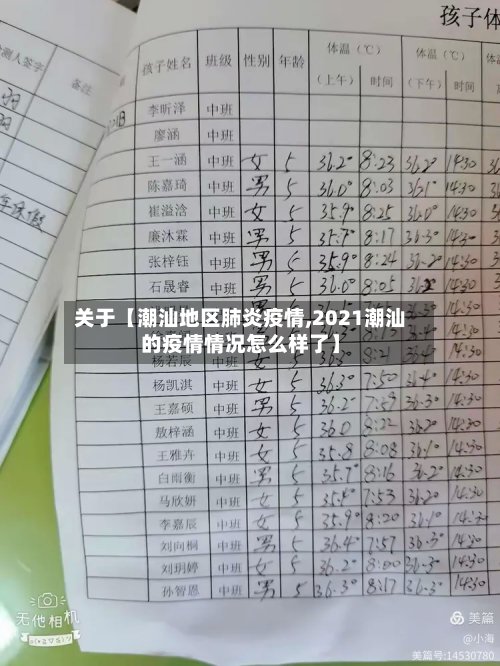 孩子体
检测人签字 备注
孩子姓名 班级 性别 年龄 体温（℃） 体温（℃）
（上午） 时间 （下午） 时间
李昕泽 中班
廖涵 中班
王一涵 中班 女 5 36.2° 8:23 36.2° 14:30
陈嘉琦 中班 男 5 36.0° 8:03 36.1° 14:30
崔溢浛 中班 女 5 35.9° 8:25 36.0° 14:30
廉沐霖 中班 男 5 35.7° 8:17 36.3° 14:30
张梓钰 中班 男 5 35.9° 8:24 36.2° 14:30
石晟睿 中班 男 5 36.0° 8:05 36.2 14:30
关于【潮汕地区肺炎疫情,2021潮汕
的疫情情况怎么样了】
杨若辰 中班 14:30
杨凯淇 中班 女 5 36.3° 7:50 36.4° 14:30
王嘉硕 中班 男 5 36.2° 7:59 36.3° 14:30
敖梓涵 中班 女 5 36.0 8:22 36.2° 14:30
王雅卉 中班 女 5 35.8 8:08 36.1° 14:30
白雨衡 中班 男 5 35.7° 8:16 36.2° 14:30
马欣妍 中班 女 5 7:53 36.2° 14:30
李嘉辰 中班 女 5 35.9° 8:20 36.1° 14:30
刘向桐 中班 男 5 36.4° 7:57 36.3° 14:30
刘玥婷 中班 女 5 36.2° 8:00 36.3° 14:30
孙智恩 中班 男 5 36.3° 8:17 36.3° 14:30
无他相机
美篇
@小海
美篇号:14530780